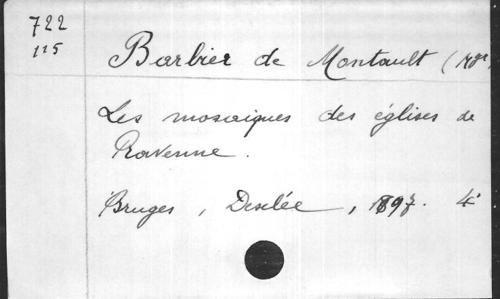 722
115
Barbier de Montault (Mgr)
Les mosaïques des églises de
Ravenne.
Bruges, Desclée, 1897. 4°